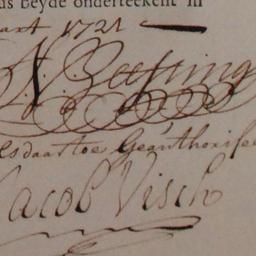 us beyde onderteekent in
aart 1721
N. Beetsning
lsdaartoe Geauthorisee
Jacob Visch